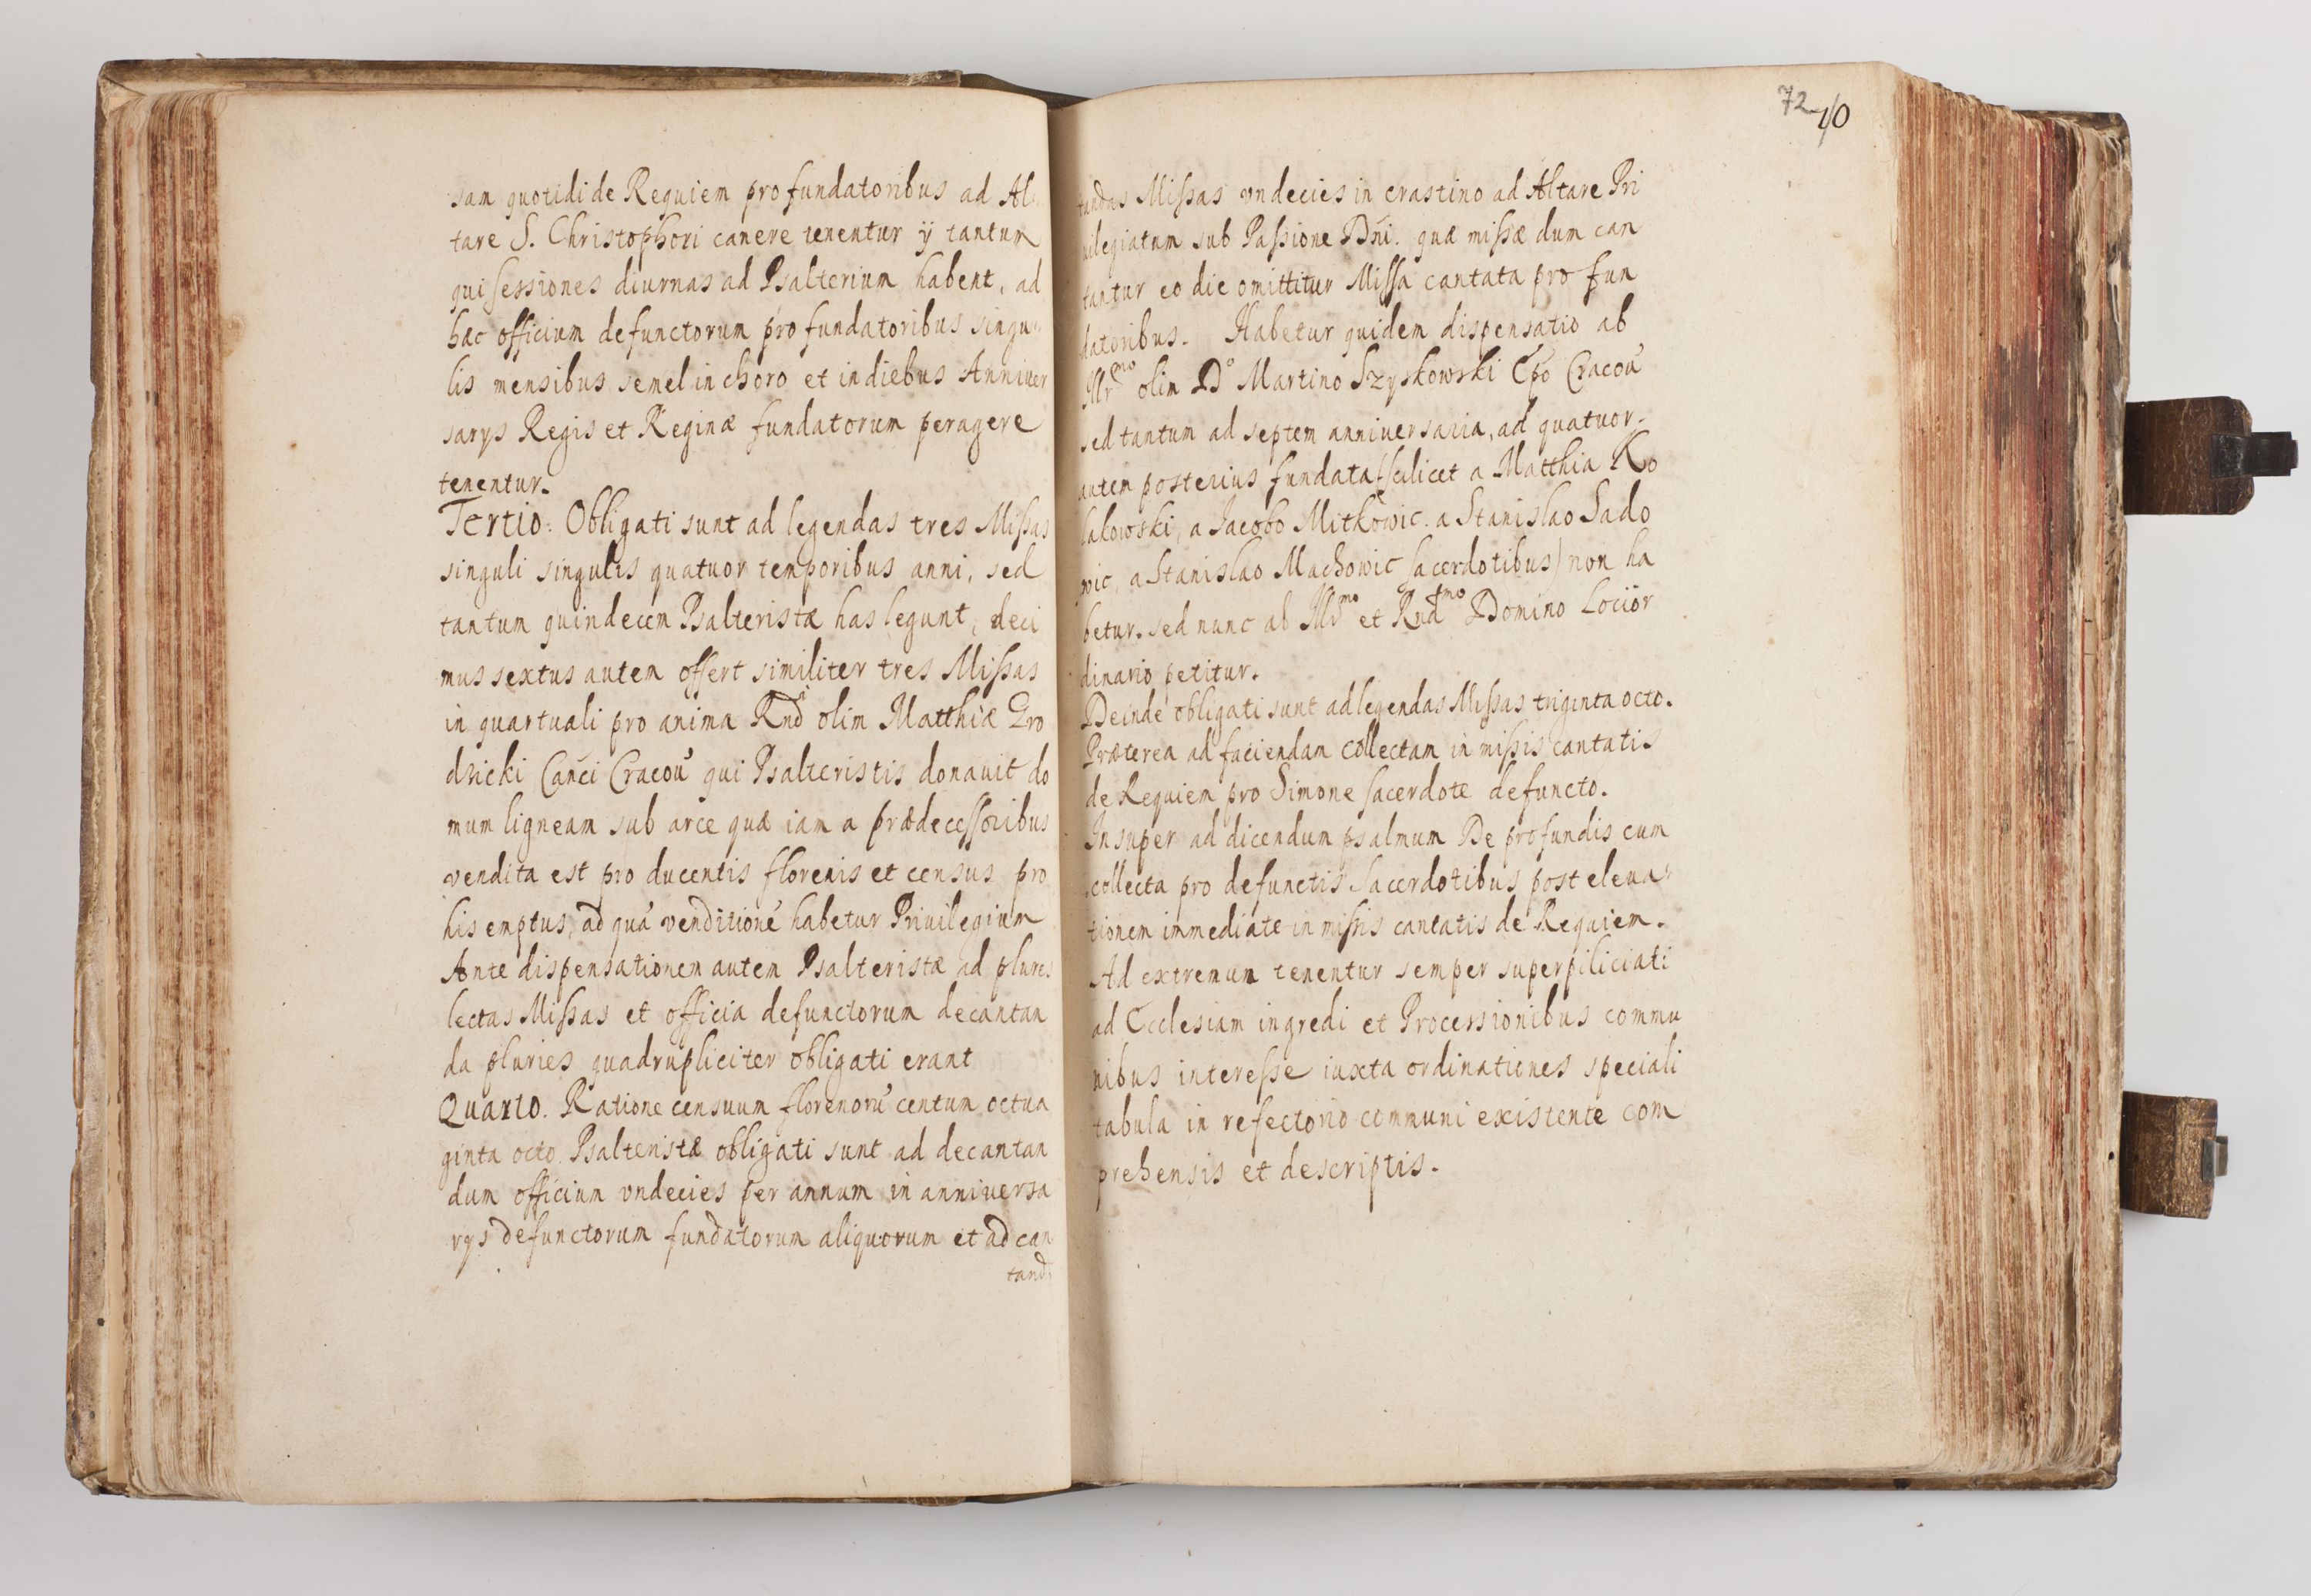 sam quotidi de Requiem pro fundatoribus ad Al
tare S. Christophori canere tenentur ÿ tantum
qui sessiones diurnas ad Psalterium habent, ad
hæc officium defunctorum pro fundatoribus singu
lis mensibus semel in choro et in diebus Anniver
sarys Regis et Reginæ fundatorum peragere
tenentur.
Tertio: Obligati sunt ad legendas tres Missas
singuli singulis quatuor temporibus anni, sed
tantum quindecem Psalteristæ has legunt, deci
mus sextus autem offert similiter tres Missas
in quartuali pro anima Rndi olim Matthiæ Gro
dzicki Canci Cracou qui Psalteristis donauit do
mum ligneam sub arce quæ iam a prædecessoribus
vendita est pro ducentis florenis et census pro
his emptus, ad quã venditionẽ habetur Priuilegium
Ante dispensationem autem Psalteristæ ad plures
lectas Missas et officia defunctorum decantan
da pluries quadrupliciter obligati erant
Quarto. Ratione censuum florenorũ centum octua
ginta octo Psalteristæ obligati sunt ad decantan
dum officium vndecies per annum in anniuersa
rys defunctorum fundatorum aliquorum et ad can
tand
72 10
tandas Missas vndecies in crastino ad Altare Pri
uilegiatum sub Passione Dni. quæ missæ dum can
tantur eo die omittitur Missa cantata pro fun
datoribus. Habetur quidem dispensatio ab
Illrmo olim Do Martino Szyskowski Epo Cracou
sed tantum ad septem anniuersaria, ad quatuor
autem posterius fundata (scilicet a Matthia Ko
lakowski, a Jacobo Mitkowic. a Stanislao Sado
wic, a Stanislao Machowic sacerdotibus) non ha
betur. sed nunc ab Illrmo et Rndmo Domino Lociör
dinario petitur.
Deinde obligati sunt ad legendas Missas triginta octo.
Præterea ad faciendam collectam in missis cantatis
de Requiem pro Simone sacerdote defuncto.
Insuper ad dicendum psalmum De profundis cum
collecta pro defunctis Sacerdotibus post eleua
tionem immediate in missis cantatis de Requiem.
Ad extremum tenentur semper superpiliciati
ad Ecclesiam ingredi et Processionibus commu
nibus interesse iuxta ordinationes speciali
tabula in refectorio communi existente com
prehensis et descriptis.